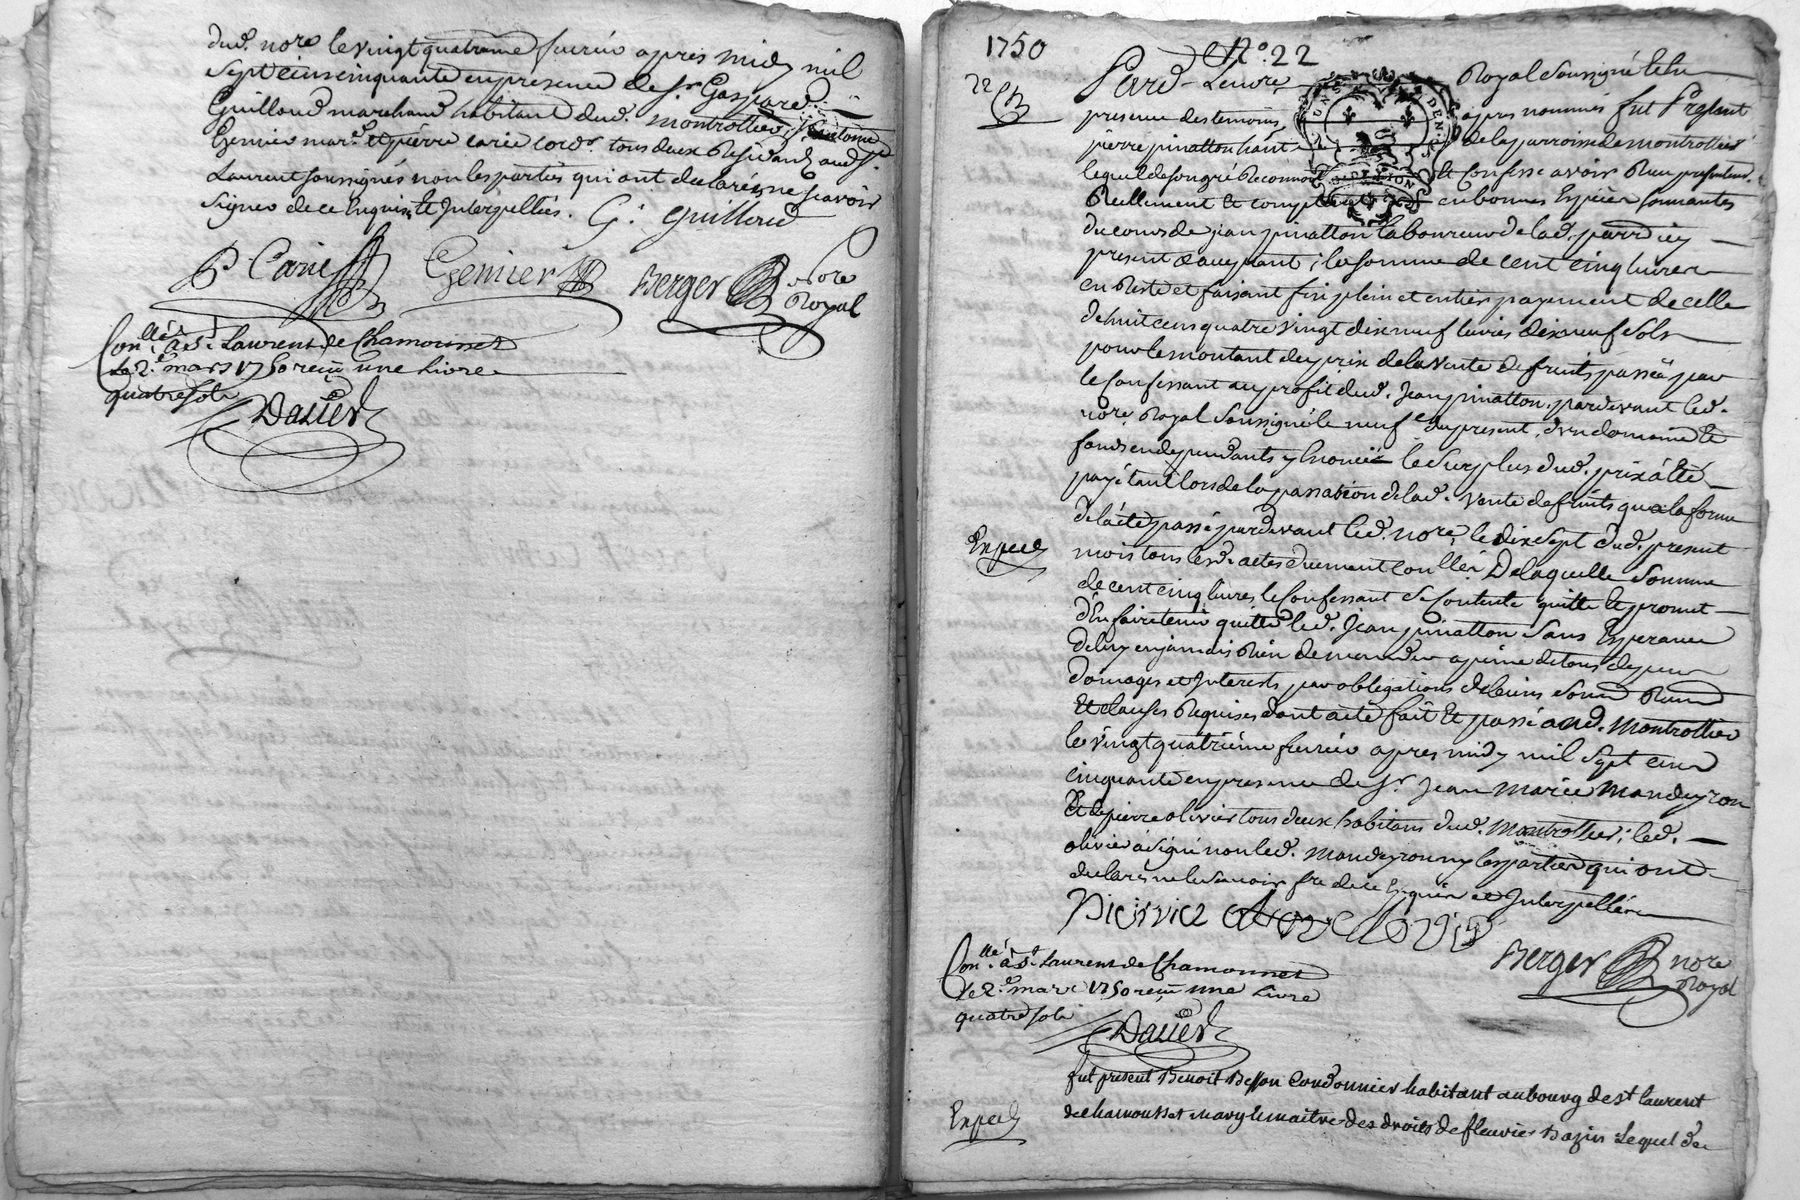 dud. nore le vingt quatrieme fevrier apres midy mil
sept cens cinquante en presence de Sr. Gaspard
Guilloud marchand habitant dud. Montrottier, Sr antoine
Gemier mar.d et pierre carie cord.r tous deux Residants aud. St.
Laurent soussignés non les parties qui ont declaré ne scavoir
signer de ce Enquis et Interpellés. G: guilloud
P Carie Gemier Berger nore
Royal
Con.llé a St. Laurent de Chamousset
Le 2.e mars 1750 reçu une Livre
quatre sols
Dauier
1750 No. 22
22
Pard- Le nore Royal Soussigné et en
presence des temoins apres nommés fut Present
pierre pinatton hant de la parroisse de montrottier
lequel de son gré Reconnoit et Confesse avoir Reçu presentemt.
Reellement et comptant en bonnes Espèces sonnantes
du cours de jean pinatton laboureur de lad. parroisse
present acceptant, la somme de cent cinq livres
en Reste et faisant fin plein et entier payement de celle
de huit cens quatre vingt dix neuf livres dix neuf sols
pour le montant du prix de la vente de fruits passée par
le confessant au profit dud. Jean pinatton, pardevant led.
nore Royal Soussigné le neuf du present, d'un domaine et
fonds en dependants y Enoncé le surplus dud. prix a été
payé tant lors de la passation de lad. vente de fruits qu'a la forme
de l'acte passé pardevant led. nore, le dix sept dud. present
Exped
mois tous lesd. actes duement con.llés De laquelle somme
de cent cinq livres le confessant se contente quitte et promet
d'En faire tenir quitte led. Jean pinatton sans Esperance
de luy en jamais Rien demander a peine de tous depens
domages et Interests par obligations de biens soum Renon
et clauses Requises dont acte fait et passé aud. Montrottier
le vingt quatrieme fevrier apres midy mil sept cens
cinquante en presence de Sr. Jean Marie Mandeyron
et de pierre olivier tous deux habitans dud. Montrottier; led.
olivier a signé non led. Mandeyron ny les parties qui ont
declaré ne le scavoir fre de ce Enquis et Interpellés
Berger nore
Royal
Con.llé a St. Laurent de Chamousset
le 2.e mars 1750 reçu une Livre
quatre sols
Dauier
fut present Benoit Besson Cordonnier habitant au bourg de st laurent
Exped
de chamousset mary et maitre des droits de fleurie Bazin Lequel de